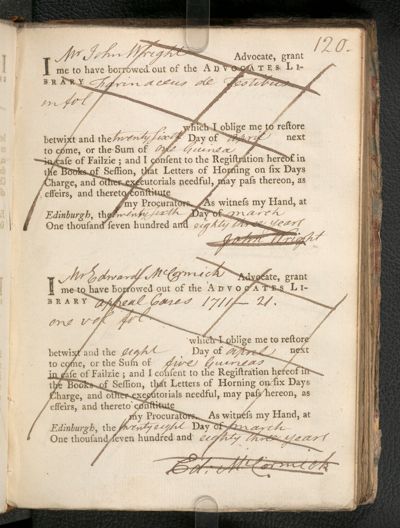 120.
I Mr John Wright Advocate, grant
me to have borrowed out of the ADVOCATES LI-
BRARY Farinaceus de Testibus
in fol
which I oblige me to reſtore
betwixt and the twenty sixth Day of april next
to come, or the Sum of one Guinea
in caſe of Failzie; and I conſent to the Regiſtration hereof in
the Books of Seſſion, that Letters of Horning on ſix Days
Charge, and other executorials needful, may paſs thereon, as
effeirs, and thereto conſtitute
my Procurators. As witneſs my Hand, at
Edinburgh, the twenty sixth Day of march
One thouſand ſeven hundred and eighty three years
John Wright
I Mr Edward McCormick Advocate, grant
me to have borrowed out of the ADVOCATES LI-
BRARY appeal Cases 1711 - 21.
one vol fol
which I oblige me to reſtore
betwixt and the eight Day of april next
to come, or the Sum of five Guineas
in caſe of Failzie; and I conſent to the Regiſtration hereof in
the Books of Seſſion, that Letters of Horning on ſix Days
Charge, and other executorials needful, may paſs hereon, as
effeirs, and thereto conſtitute
my Procurators. As witneſs my Hand, at
Edinburgh, the twenty eight Day of march
One thouſand ſeven hundred and eighty three years
Ed. McCormick